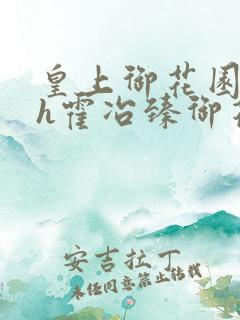 皇上御花园
h霍冶臻御花
安吉拉丁
未经同意禁止转载